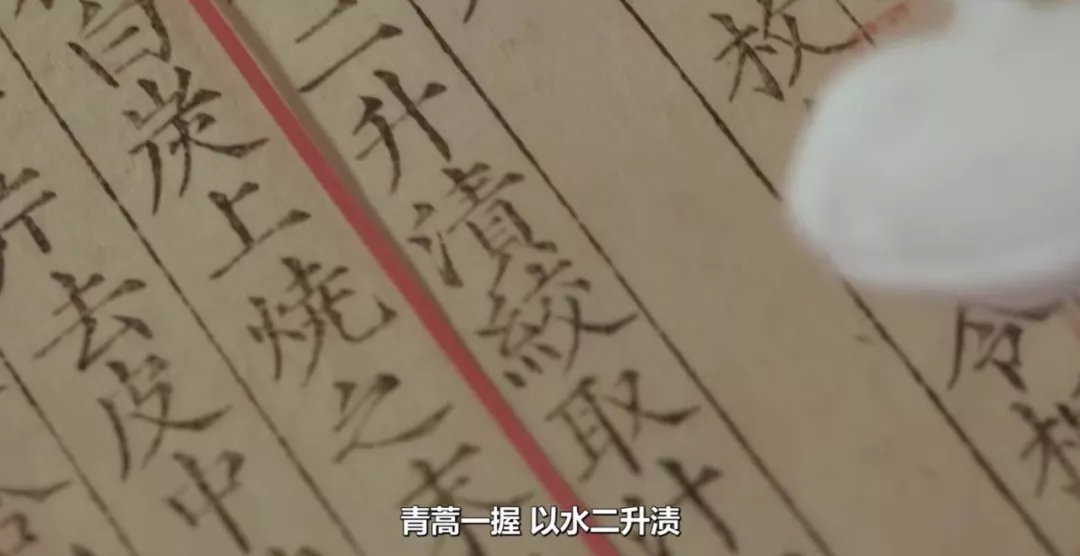 令
二升漬絞取汁
炭上燒之末
片去皮中
青蒿一握 以水二升渍